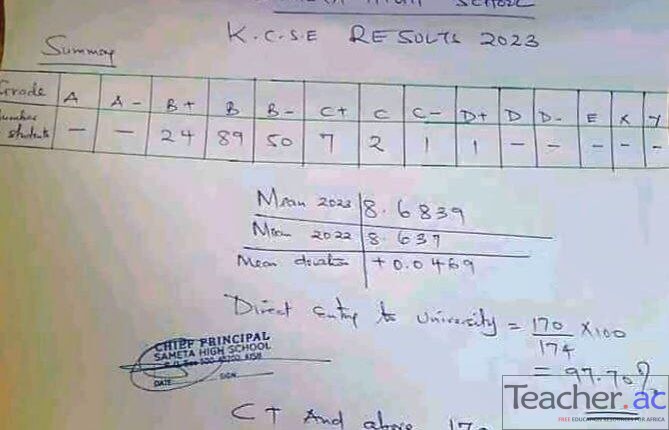 SCHOOL
K.C.S.E RESULTS 2023
Summary
Grade A A- B+ B B- C+ C C- D+ D D- E X Y
Number students — — 24 89 50 7 2 1 1 – – – – –
Mean 2023 8.6839
Mean 2022 8.637
Mean deviation +0.0469
Direct Entry to University = 170/174 X100
= 97.70%
CHIEF PRINCIPAL
SAMETA HIGH SCHOOL
DATE SIGN
C+ And above
Teacher.ac
FREE EDUCATION RESOURCES FOR AFRICA